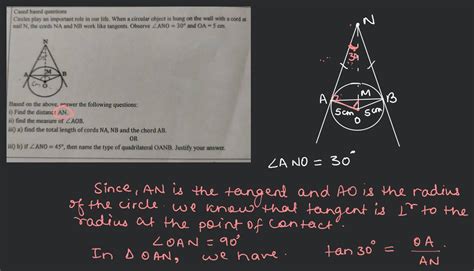 Cased based questions
Circles play an important role in our life. When a circular object is hung on the wall with a cord at
nail N, the cords NA and NB work like tangents. Observe ∠ANO = 30° and OA = 5 cm.
N
M
A
B
O
Based on the above, answer the following questions:
i) Find the distance AN.
ii) find the measure of ∠AOB.
iii) a) find the total length of cords NA, NB and the chord AB.
OR
iii) b) if ∠ANO = 45°, then name the type of quadrilateral OANB. Justify your answer.
N
30
A
M
B
5cm
5cm
O
∠ANO = 30°
Since, AN is the tangent and AO is the radius
of the circle. we know that tangent is ⊥r to the
radius at the point of contact.
∠OAN = 90°
In Δ OAN, we have. tan30° = OA
AN